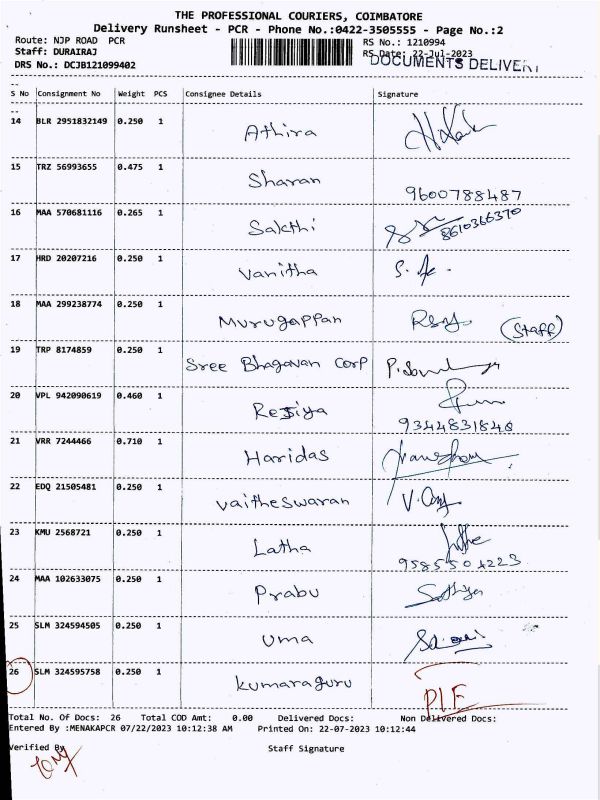 THE PROFESSIONAL COURIERS, COIMBATORE
Delivery Runsheet - PCR - Phone No.:0422-3505555 - Page No.:2
Route: NJP ROAD PCR RS No.: 1210994
Staff: DURAIRAJ RS Date: 22-Jul-2023
DRS No.: DCJB121099402 DOCUMENTS DELIVERY
S No Consignment No Weight PCS Consignee Details Signature
14 BLR 2951832149 0.250 1 Athira
15 TRZ 56993655 0.475 1 Sharan 9600788487
16 MAA 570681116 0.265 1 Sakthi 8610366370
17 HRD 20207216 0.250 1 Vanitha
18 MAA 299238774 0.250 1 Murugappan (Staff)
19 TRP 8174859 0.250 1 Sree Bhagavan Corp
20 VPL 942090619 0.460 1 Resiya 9344831846
21 VRR 7244466 0.710 1 Haridas
22 EDQ 21505481 0.250 1 Vaitheswaran
23 KMU 2568721 0.250 1 Latha 9585504223
24 MAA 102633075 0.250 1 Prabu Sathya
25 SLM 324594505 0.250 1 Uma
26 SLM 324595758 0.250 1 Kumaraguru PLF
Total No. Of Docs: 26 Total COD Amt: 0.00 Delivered Docs: Non Delivered Docs:
Entered By :MENAKAPCR 07/22/2023 10:12:38 AM Printed On: 22-07-2023 10:12:44
Verified By Staff Signature